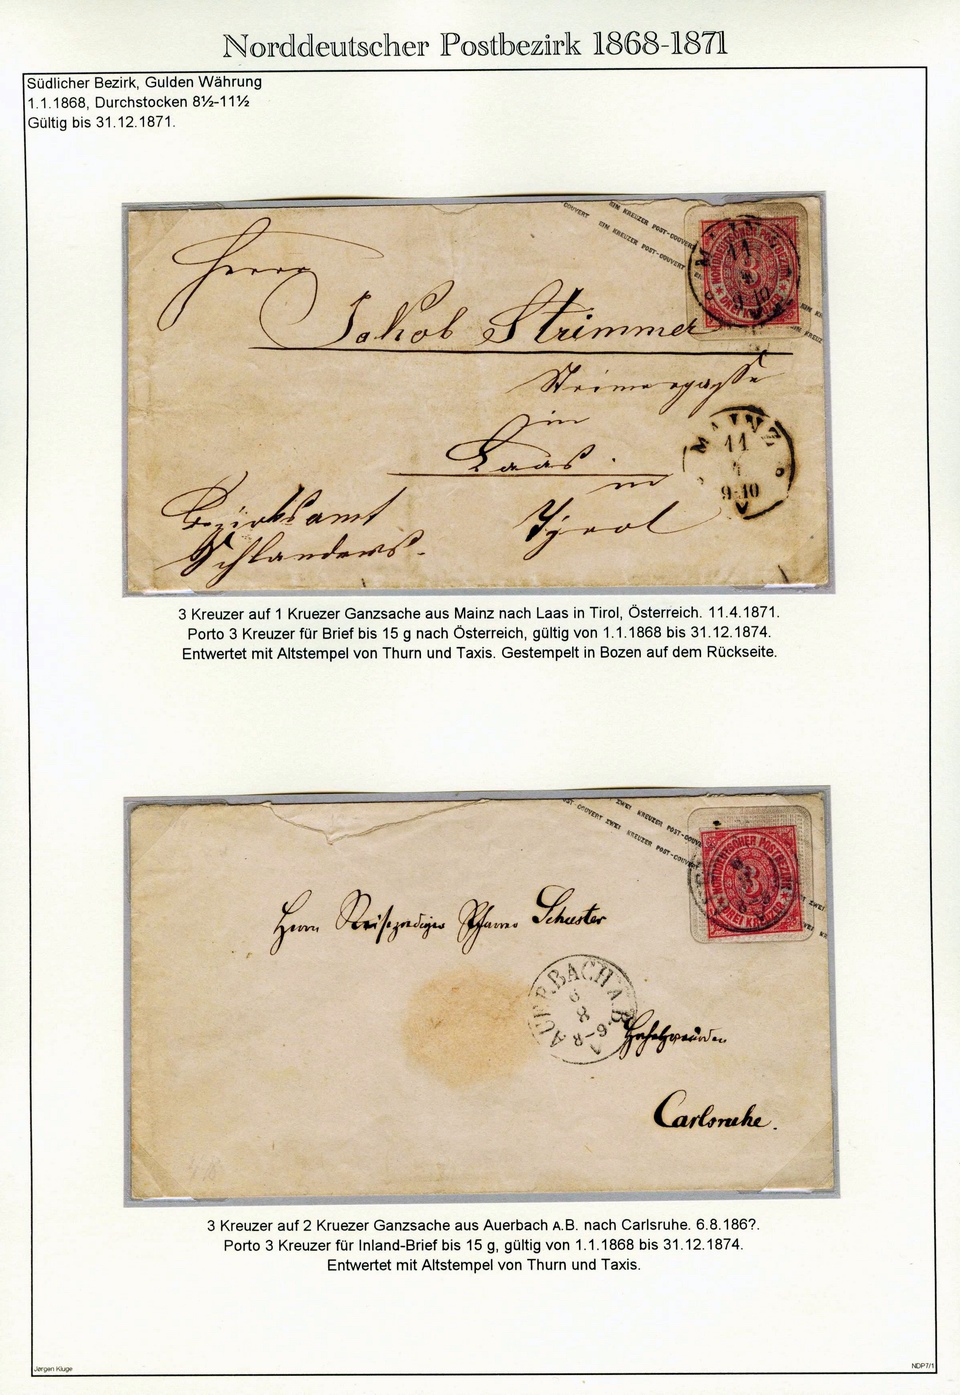 Norddeutscher Postbezirk 1868-1871
Südlicher Bezirk, Gulden Währung
1.1.1868, Durchstocken 8½-11½
Gültig bis 31.12.1871.
COUVERT
EIN KREUZER POST-COUVERT
EIN KREUZER POST-COUVERT
MAINZ
11
4
9-10
NORDDEUTSCHER POSTBEZIRK
3
DREI KREUZER
Herrn
Jakob Strimmer
in
Laas.
in
Tyrol
Bezirksamt
Schlanders.
MAINZ
11
4
9-10
V
3 Kreuzer auf 1 Kruezer Ganzsache aus Mainz nach Laas in Tirol, Österreich. 11.4.1871.
Porto 3 Kreuzer für Brief bis 15 g nach Österreich, gültig von 1.1.1868 bis 31.12.1874.
Entwertet mit Altstempel von Thurn und Taxis. Gestempelt in Bozen auf dem Rückseite.
ZWEI KREUZER POST-COUVERT
POST COUVERT ZWEI KREUZER POST-COUVERT
ZWEI
NORDDEUTSCHER POSTBEZIRK
3
DREI KREUZER
Herrn Pfarrer Schuster
AUERBACH A.B.
6
8
6-8
Carlsruhe.
3 Kreuzer auf 2 Kruezer Ganzsache aus Auerbach A.B. nach Carlsruhe. 6.8.186?.
Porto 3 Kreuzer für Inland-Brief bis 15 g, gültig von 1.1.1868 bis 31.12.1874.
Entwertet mit Altstempel von Thurn und Taxis.
Jørgen Kluge
NDP7/1